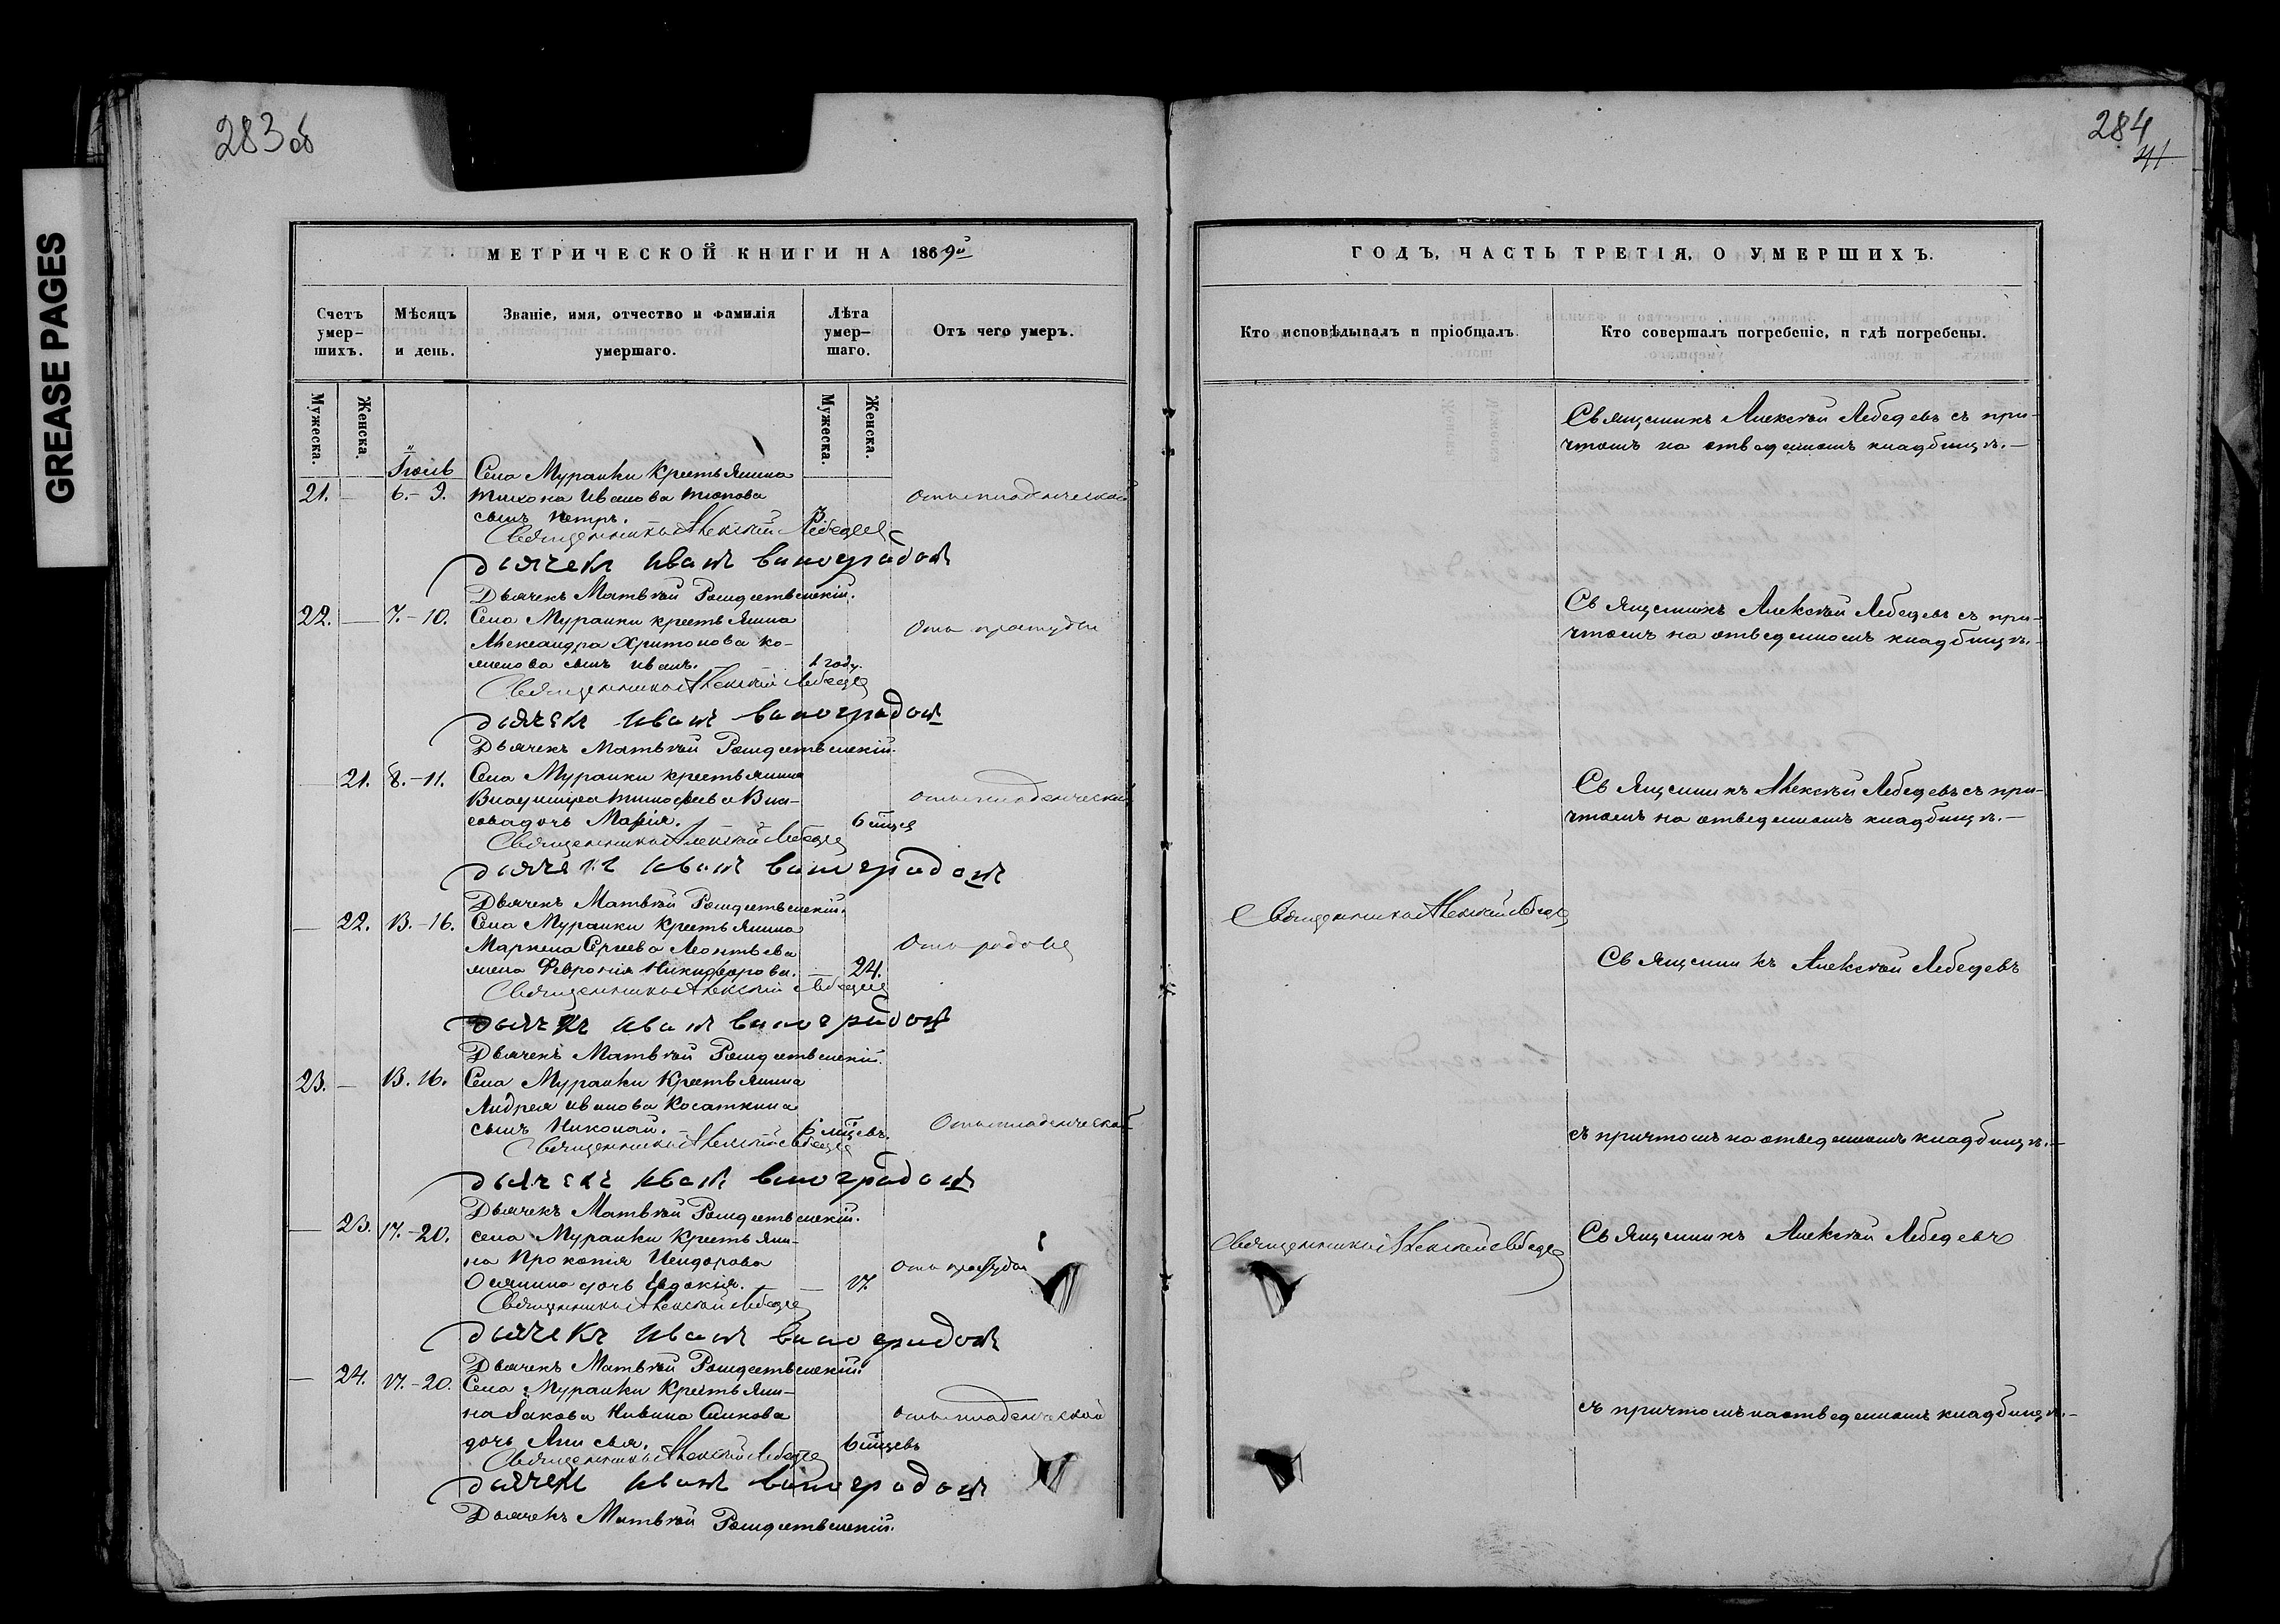 GREASE PAGES
283 об
МЕТРИЧЕСКОЙ КНИГИ НА 1869й
Счетъ умер-шихъ.
Мѣсяцъ и день.
Званіе, имя, отчество и фамилія умершаго.
Лѣта умер-шаго.
Отъ чего умеръ.
Мужеска.
Женска.
Мужеска.
Женска.
Іюль
21. — 6.- 9. Села Муранки крестьянина
Тихона Иванова
сынъ Петръ. 3 Отъ младенческой
Священникъ Алексѣй Лебедев
дьячекъ иванъ виноградовъ
Дьячекъ Матвѣй Рождественскій.
22. — 7.-10. Села Муранки крестьянина
Александра Харитонова Ко-
сынъ Иванъ. 1 году. Отъ простуды
Священникъ Алексѣй Лебедев
дьячекъ иванъ виноградовъ
Дьячекъ Матвѣй Рождественскій.
— 21. 8.-11. Села Муранки крестьянина
Владимира Тимофеева Вла-
сова дочь Марія. 6 мцев Отъ младенческой
Священникъ Алексѣй Лебедев
дьячекъ иванъ виноградовъ
Дьячекъ Матвѣй Рождественскій.
— 22. 13.-16. Села Муранки крестьянина
Маркела Сергеева Леонтьева
жена Феврония Никифорова. — 24. Отъ родовъ
Священникъ Алексѣй Лебедев
дьячекъ иванъ виноградовъ
Дьячекъ Матвѣй Рождественскій.
23. — 13. 16. Села Муранки крестьянина
Андрея Иванова Косаткина
сынъ Николай. 6 мцевъ. Отъ младенческой
Священникъ Алексѣй Лебедев
дьячекъ иванъ виноградовъ
Дьячекъ Матвѣй Рождественскій.
— 23. 17.-20. села Муранки крестьяни-
на Прокопія Исидорова
дочь Евдокія. — 17. Отъ простуды
Священникъ Алексѣй Лебедев
дьячекъ иванъ виноградовъ
Дьячекъ Матвѣй Рождественскій.
— 24. 17.-20. Села Муранки крестьяни-
на Іакова
дочь Анисья. 6 мцевъ Отъ младенческой
Священникъ Алексѣй Лебедев
дьячекъ иванъ виноградовъ
Дьячекъ Матвѣй Рождественскій.
284
41
ГОДЪ, ЧАСТЬ ТРЕТІЯ, О УМЕРШИХЪ.
Кто исповѣдывалъ и пріобщалъ.
Кто совершалъ погребеніе, и гдѣ погребены.
Священникъ Алексѣй Лебедевъ съ при-
чтомъ на отведенномъ кладбищѣ.—
Священникъ Алексѣй Лебедевъ съ при-
чтомъ на отведенномъ кладбищѣ.—
Священникъ Алексѣй Лебедевъ съ при-
чтомъ на отведенномъ кладбищѣ.—
Священникъ Алексѣй Лебедев
Священникъ Алексѣй Лебедевъ
съ причтомъ на отведенномъ кладбищѣ.—
Священникъ Алексѣй Лебедев
Священникъ Алексѣй Лебедевъ
съ причтомъ на отведенномъ кладбищѣ.—